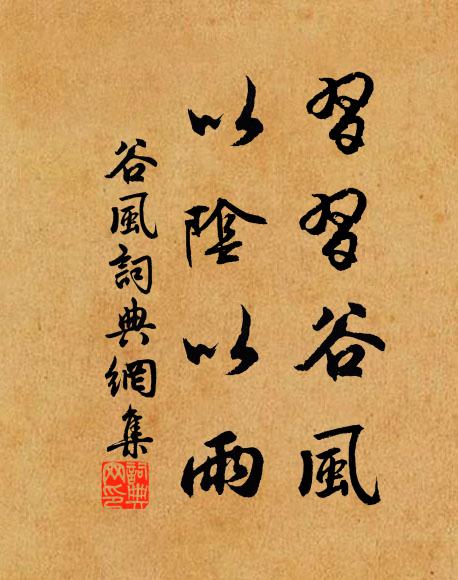 習習谷風
以陰以雨
谷風詞典網集
詞典網印